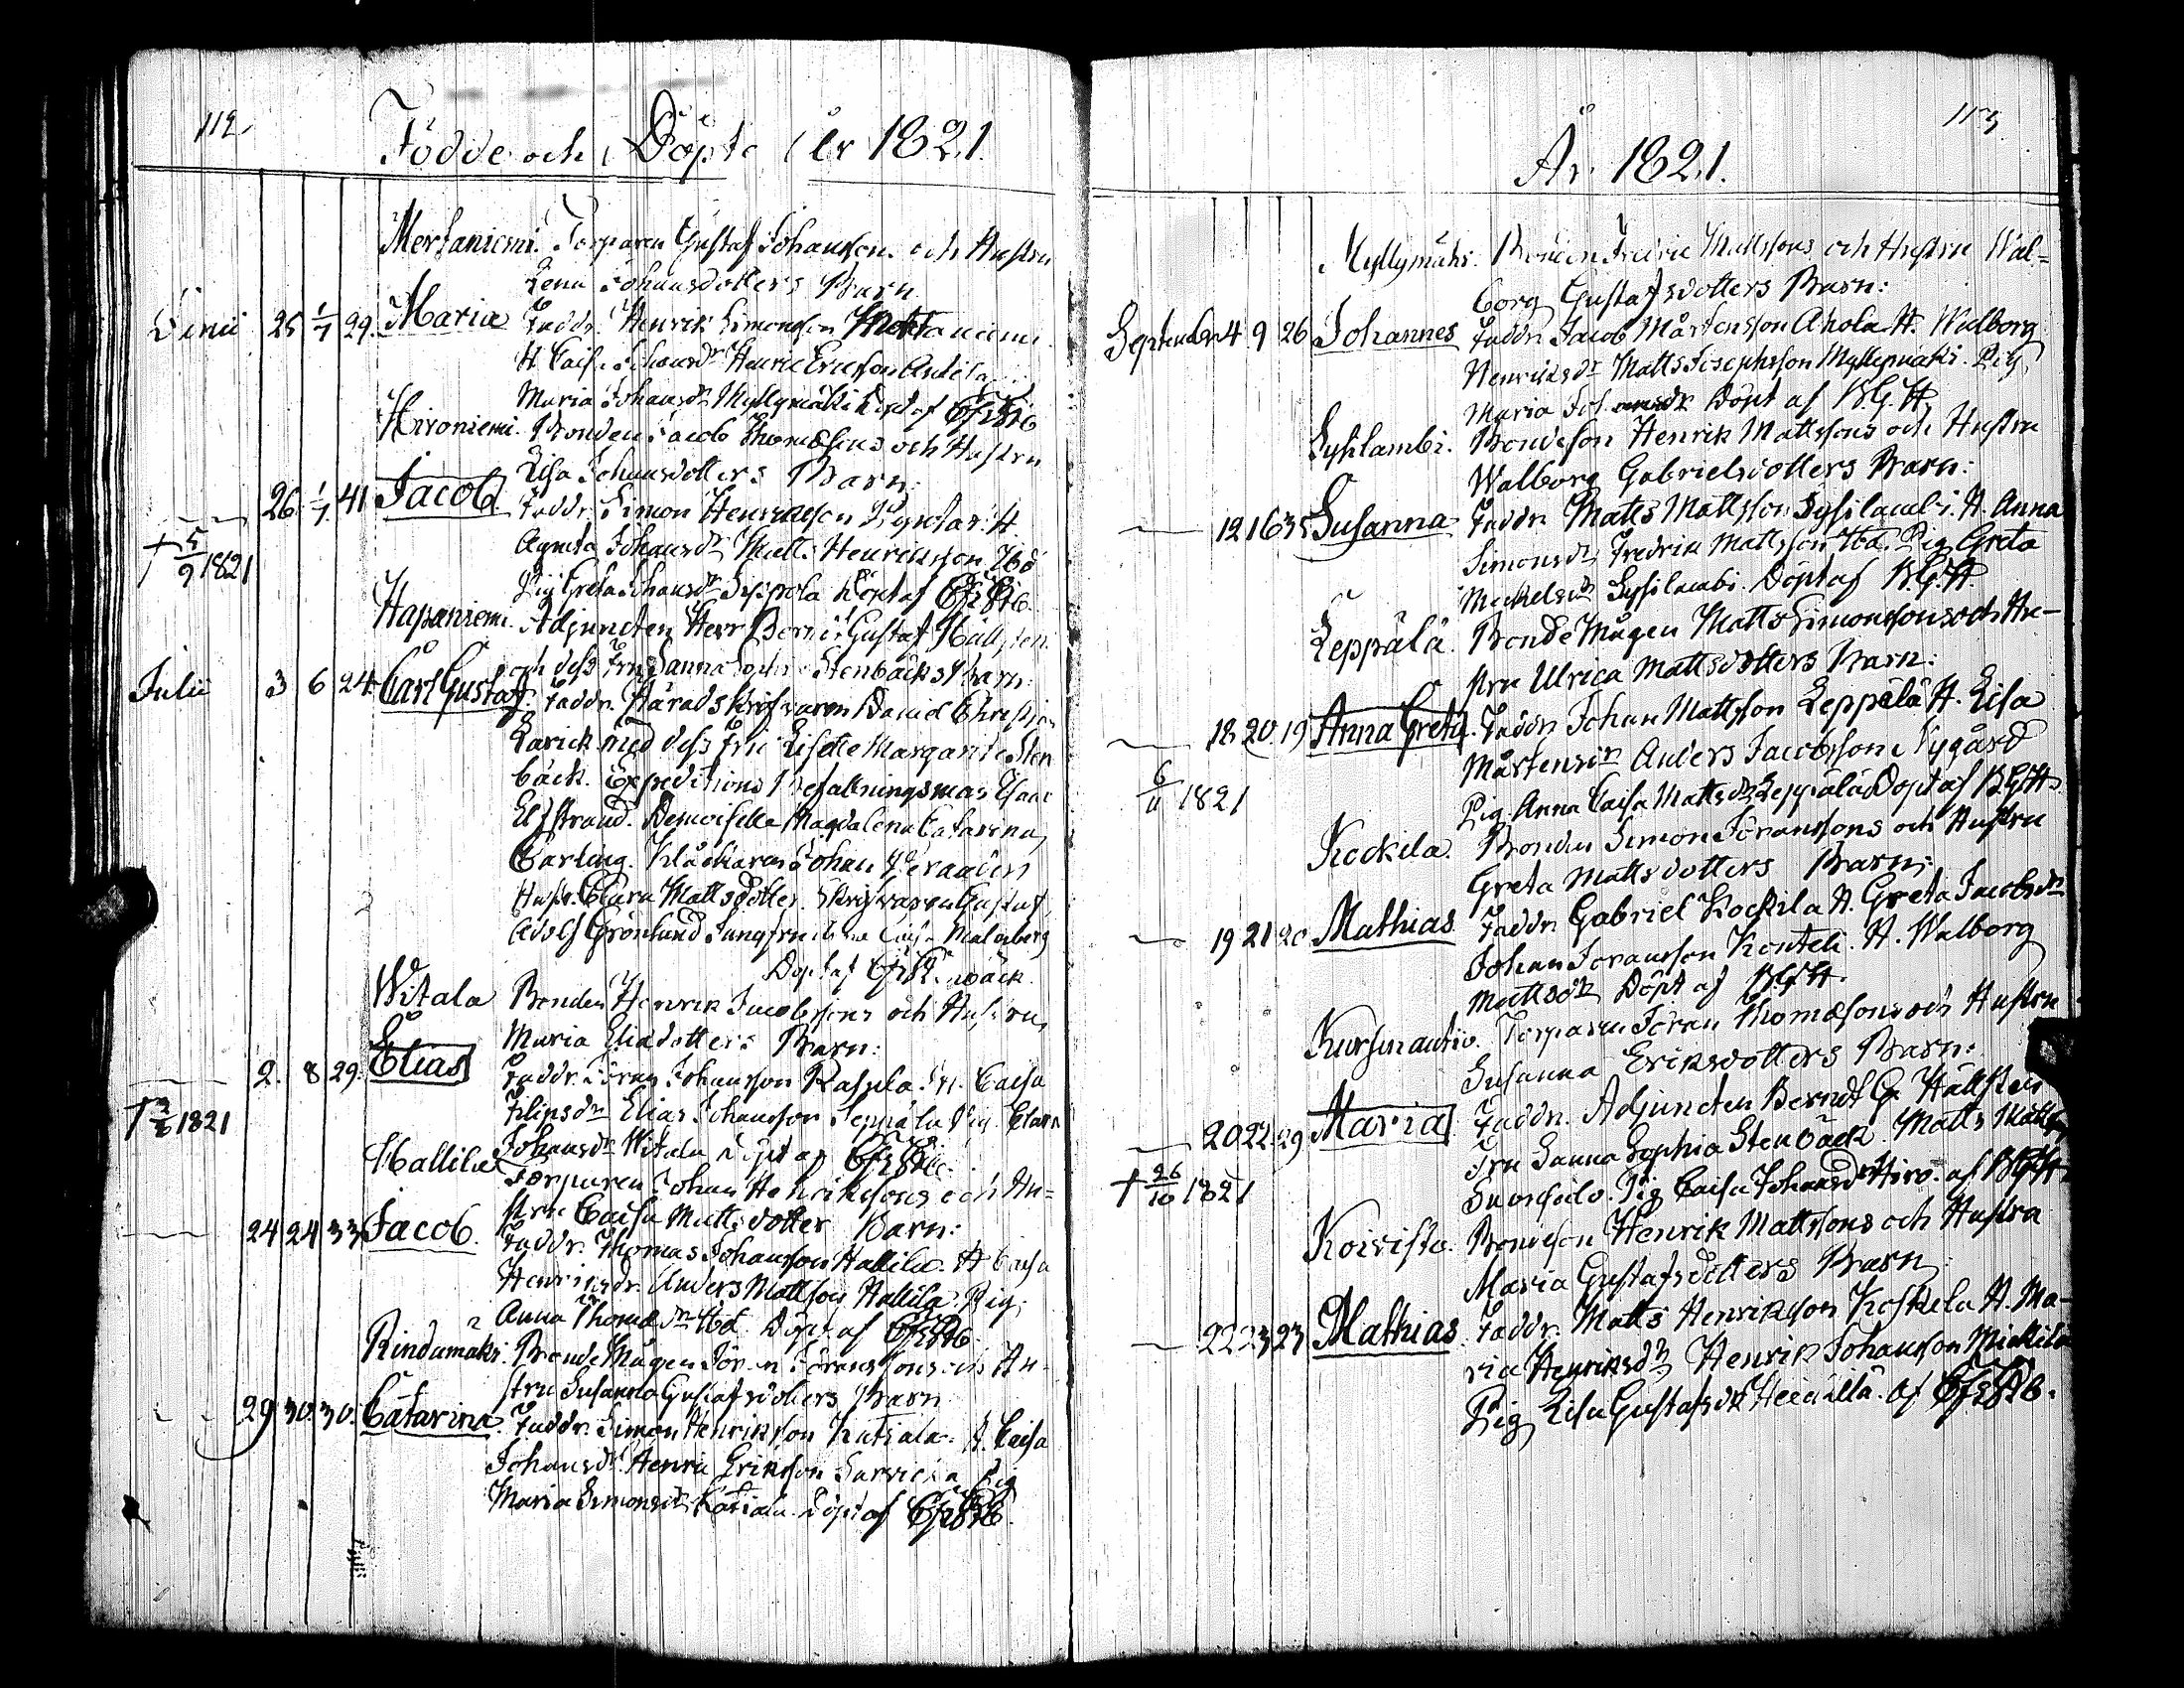 112.
Födde och Döpte År 1821.
Mertaniemi. Torparen Gustaf Johansson och Hustru
Lena Johansdotters Barn
Junii 25 1/7 29. Maria Faddr. Henrik Simonsson Mertaniemi
H Caisa Johansdr Henric Ericsson Antila
Maria Johansdr Myllymäki Döpt af
Hironiemi. Bonden Jacob Thomæsons och Hustru
Lisa Johansdotters Barn:
26 1/7 41 Jacob Faddr. Simon Henricsson H
† 5/9 1821
Agneta Johansdr Matts Henriksson Ibd
Pig Greta Johansdr Seppola Döpt af
Hapaniemi. Adjuncten Herr Bernt Gustaf Hällsten
och dess Fru Sanna Sophia Stenbäcks Barn:
Julii 3 6 24 Carl Gustaf. Faddr. Häradsskrifvaren David Christian
Larick med dess Fru Lisette Margareta Sten
bäck. Expeditions Befallningsman Isaac
Elfstrand. Demoiselle Magdalena Catarina
Carling. Klåckaren Johan
Hustr. Clara Mattsdotter. Skrifvaren Gustaf
Adolf Grönlund Jungfru Caisa Malmberg
Döpt af
Witala Bonden Henrik Jacobssons och Hustru
Maria Eliædotters Barn:
2. 8 29. Elias Faddr. Jöran Johansson Kaspela. H. Caisa
† 3/8 1821
Filipsdr Elias Johansson Seppälä Pig. Clara
Johansdr Witala Döpt af
Hallila Torparen Johan Henrikssons och Hu=
stru Caisa Mattsdotter Barn:
24 24 33 Jacob. Faddr. Thomas Johansson Hallila. H Caisa
Henriksdr. Anders Mattsson Hallila. Pig
Anna Thomædr Ibd. Döpt af
Rindamäki. Bonde Mågen Jöran Jöranssons och Hu-
stru Susanna Gustafsdotters Barn
29 30. 30. Catarina. Faddr. Simon Henriksson Katiala. H. Caisa
Johansdr. Henric Eriksson Pig
Maria Simonsdr Katiala. Döpt af
113
År 1821.
Myllymäki. Bonden Fredric Mattssons och Hustru Wal=
borg Gustafsdotters Barn:
September 4 9 26 Johannes Faddr. Jacob Mårtensson Ahola H. Walborg
Henriksdr Matts Josephsson Myllymäki. Pig
Maria Johansdr Döpt af B.G.H
Syhlambi. Bondeson Henrik Mattssons och Hustru
Walborg Gabrielsdotters Barn:
12 16 35 Susanna Faddr. Matts Mattsson Sysilambi. H. Anna
Simonsdr Fredrik Mattsson Ibd. Pig Greta
Mickelsdr Sysilambi. Döpt af B.G.H
Leppälä. Bonde Mågen Matts Simonssons och Hu-
stru Ulrica Mattsdotters Barn:
18. 20. 19 Anna Greta. Faddr. Johan Mattsson Leppälä H. Lisa
6/11 1821
Mårtensdr Anders Jacobsson Nygård
Pig. Anna Caisa Mattsdr Leppälä Döpt af B.G.H.
Kockila. Bonden Simon Jöranssons och Hustru
Greta Mattsdotters Barn:
19 21 20 Mathias Faddr. Gabriel Kockila H. Greta Jacobsdr
Johan Joransson H. Walborg
Mattsdr Döpt af B.G.H.
Torparen Jöran Thomæsons och Hustru
Susanna Eriksdotters Barn:
20 22. 29 Maria Faddr. Adjuncten Berndt G. Hällsten
† 26/10 1821
Fru Sanna Sophia Stenbäck. Matts
Pig Caisa Johansdr Hiro. af B.G.H.
Koivisto. Bondeson Henrik Mattssons och Hustru
Maria Gustafsdotters Barn
22 23 23 Mathias Faddr. Matts Henriksson Koskela H. Ma-
ria Henriksdr Henrik Johansson Mickila
Pig Lisa Gustafsdr Heickilä. af